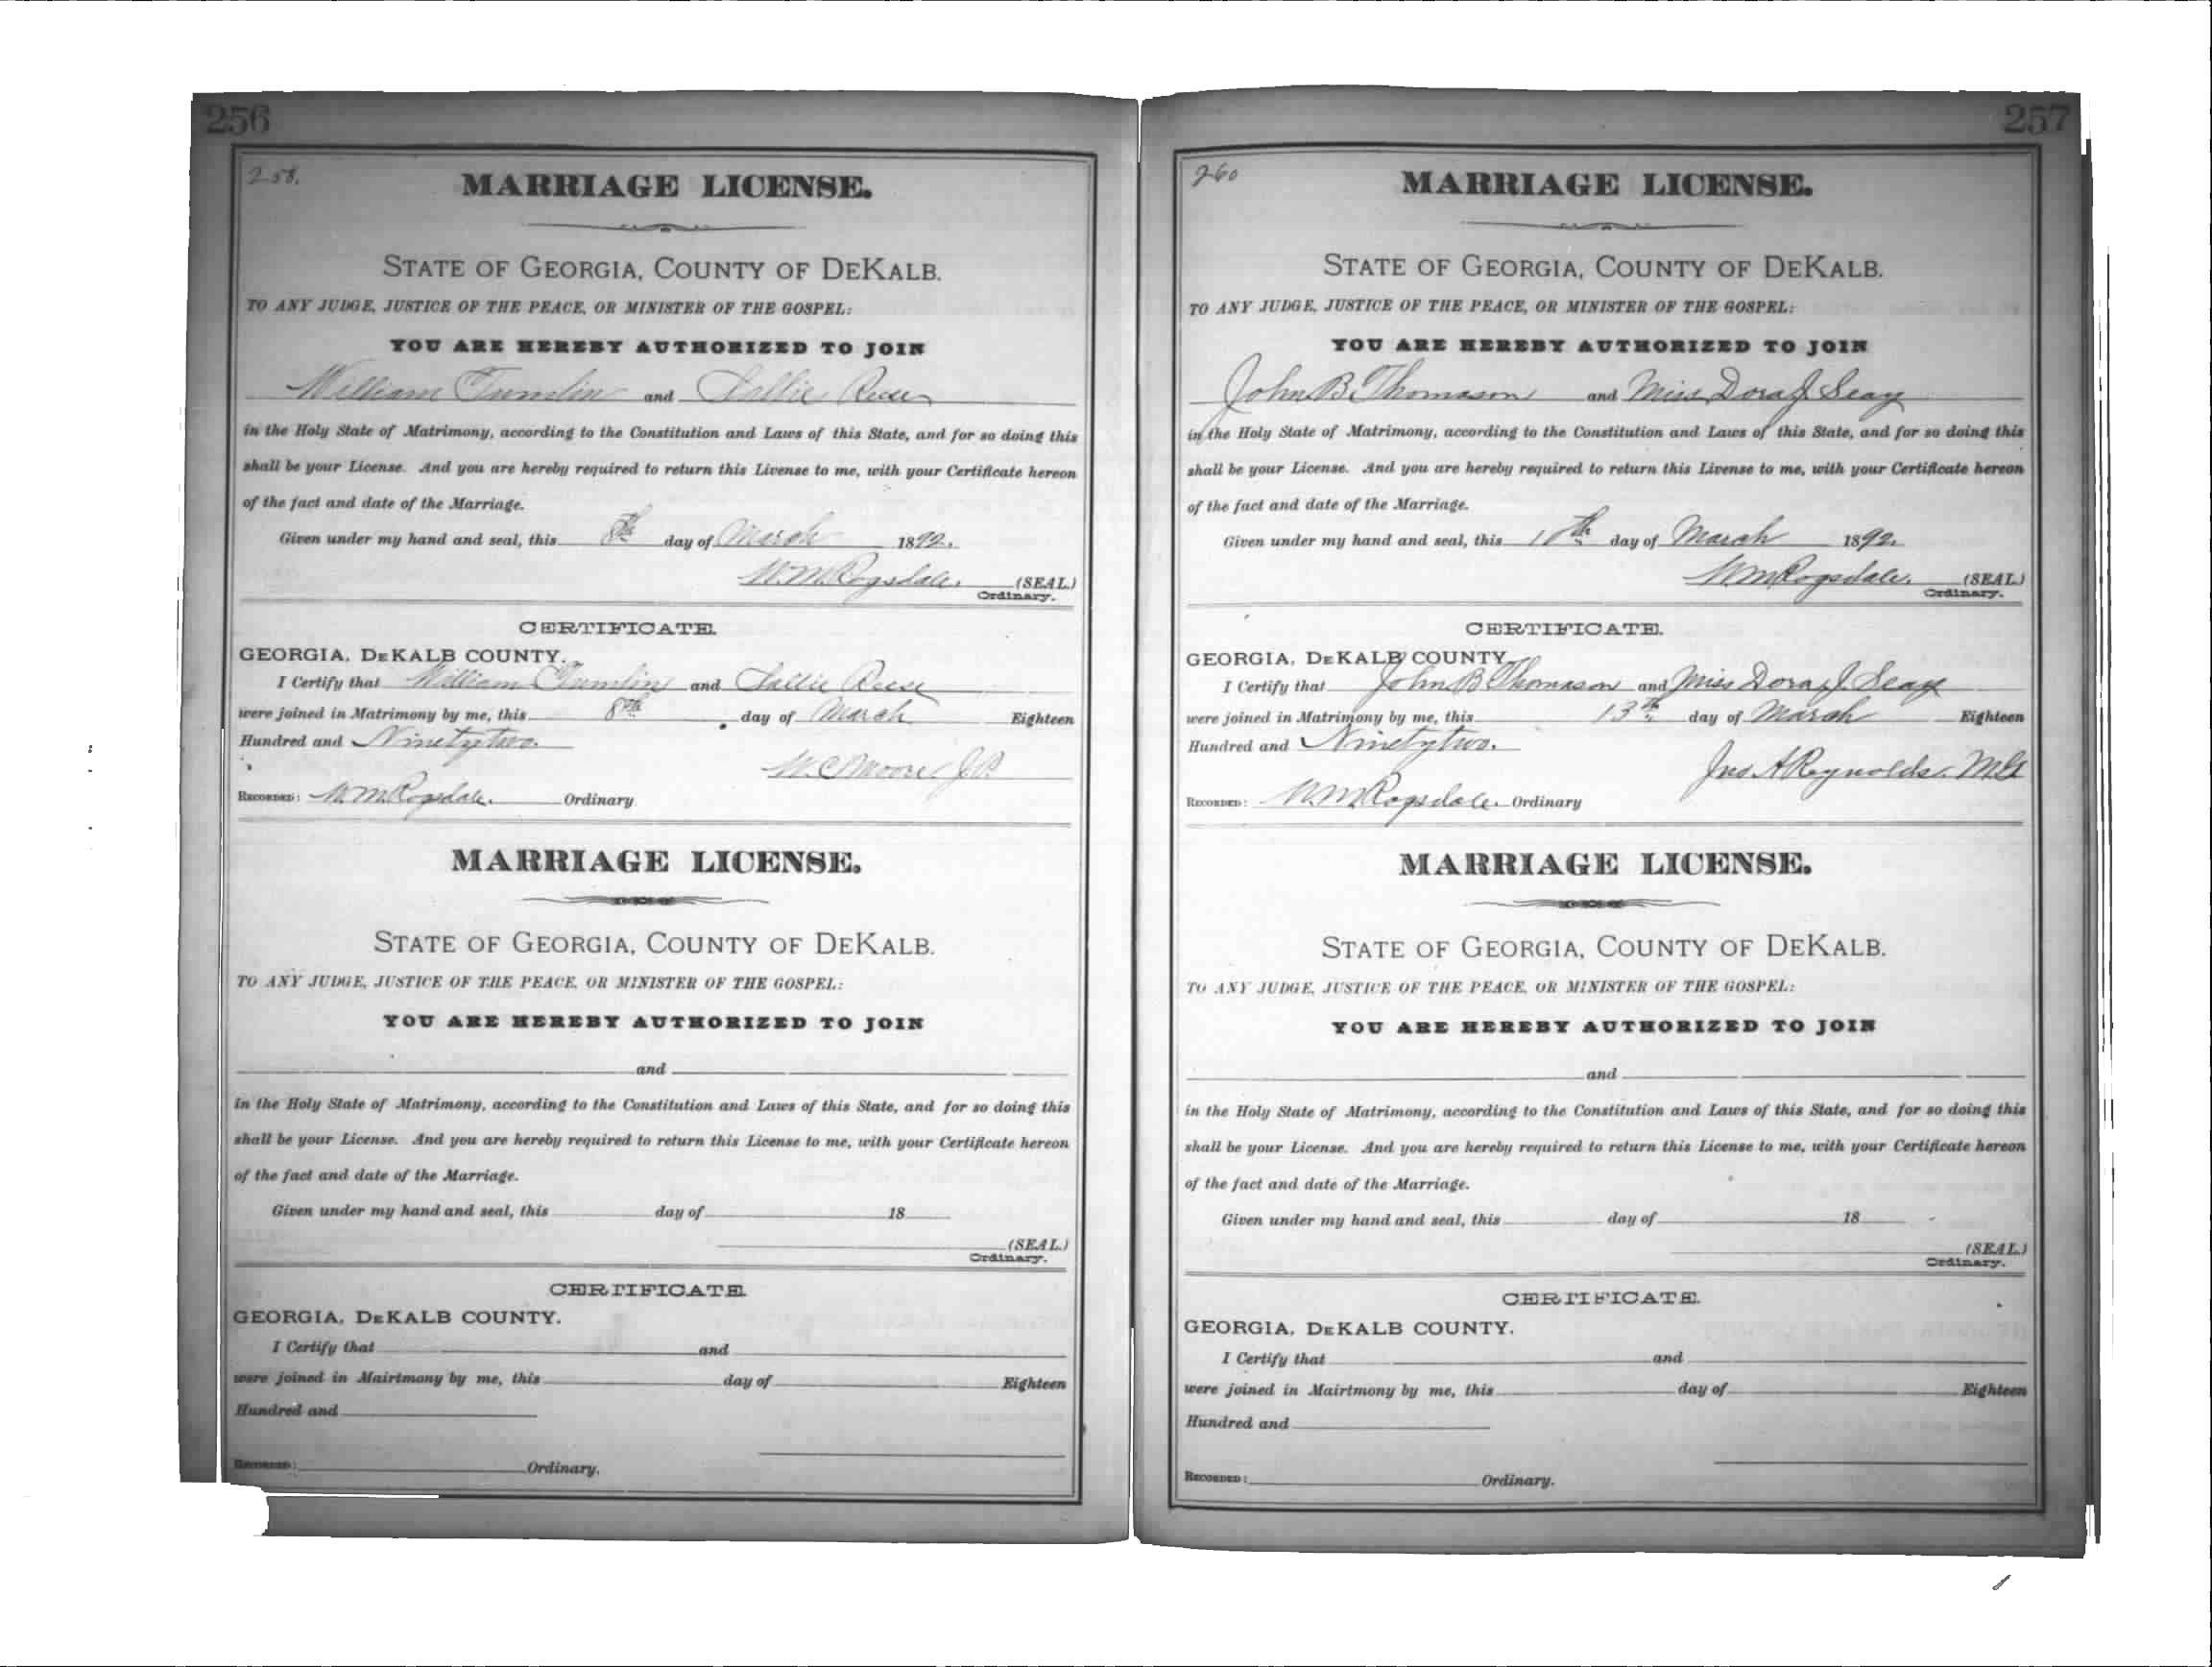 256
258.
MARRIAGE LICENSE.
STATE OF GEORGIA, COUNTY OF DEKALB.
TO ANY JUDGE, JUSTICE OF THE PEACE, OR MINISTER OF THE GOSPEL:
YOU ARE HEREBY AUTHORIZED TO JOIN
William Tumlin and Sallie Reese
in the Holy State of Matrimony, according to the Constitution and Laws of this State, and for so doing this
shall be your License. And you are hereby required to return this License to me, with your Certificate hereon
of the fact and date of the Marriage.
Given under my hand and seal, this 8th day of March 1892.
W. M. Ragsdale. (SEAL.)
Ordinary.
CERTIFICATE.
GEORGIA, DEKALB COUNTY.
I Certify that William Tumlin and Sallie Reese
were joined in Matrimony by me, this 8th day of March Eighteen
Hundred and Ninety two.
W. C. Moore J.P.
RECORDED: W. M. Ragsdale. Ordinary
MARRIAGE LICENSE.
STATE OF GEORGIA, COUNTY OF DEKALB.
TO ANY JUDGE, JUSTICE OF THE PEACE, OR MINISTER OF THE GOSPEL:
YOU ARE HEREBY AUTHORIZED TO JOIN
and
in the Holy State of Matrimony, according to the Constitution and Laws of this State, and for so doing this
shall be your License. And you are hereby required to return this License to me, with your Certificate hereon
of the fact and date of the Marriage.
Given under my hand and seal, this day of 18
(SEAL.)
Ordinary.
CERTIFICATE
GEORGIA, DEKALB COUNTY.
I Certify that and
were joined in Mairtmony by me, this day of Eighteen
Hundred and
RECORDED: Ordinary.
257
260
MARRIAGE LICENSE.
STATE OF GEORGIA, COUNTY OF DEKALB.
TO ANY JUDGE, JUSTICE OF THE PEACE, OR MINISTER OF THE GOSPEL:
YOU ARE HEREBY AUTHORIZED TO JOIN
John B. Thomason and Miss Dora J. Seay
in the Holy State of Matrimony, according to the Constitution and Laws of this State, and for so doing this
shall be your License. And you are hereby required to return this License to me, with your Certificate hereon
of the fact and date of the Marriage.
Given under my hand and seal, this 10th day of March 1892.
W M Ragsdale. (SEAL.)
Ordinary.
CERTIFICATE.
GEORGIA, DEKALB COUNTY.
I Certify that John B Thomason and Miss Dora J. Seay
were joined in Matrimony by me, this 13th day of March Eighteen
Hundred and Ninety two.
Jno. A Reynolds. MG
RECORDED: W. M. Ragsdale. Ordinary
MARRIAGE LICENSE.
STATE OF GEORGIA, COUNTY OF DEKALB.
TO ANY JUDGE, JUSTICE OF THE PEACE, OR MINISTER OF THE GOSPEL:
YOU ARE HEREBY AUTHORIZED TO JOIN
and
in the Holy State of Matrimony, according to the Constitution and Laws of this State, and for so doing this
shall be your License. And you are hereby required to return this License to me, with your Certificate hereon
of the fact and date of the Marriage.
Given under my hand and seal, this day of 18
(SEAL.)
Ordinary.
CERTIFICATE.
GEORGIA, DEKALB COUNTY.
I Certify that and
were joined in Mairtmony by me, this day of Eighteen
Hundred and
RECORDED: Ordinary.